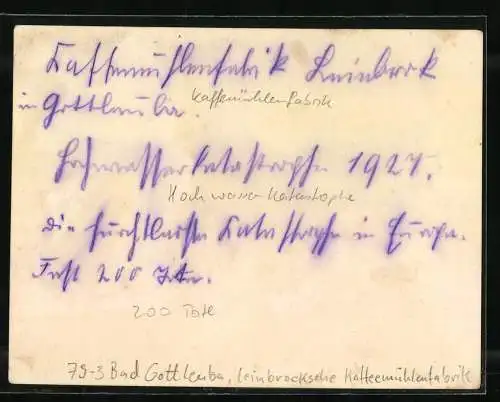 Kaffemühlenfabrik Leinbrock
in Gottleuba.
Kaffemühlenfabrik
Hochwasserkatastrophe 1927.
Hochwasserkatastophe
die furchtbarste Katastrophe in Europa.
Fast 200 Tote.
200 Tote
79-3 Bad Gottleuba, Leinbrocksche Kaffeemühlenfabrik